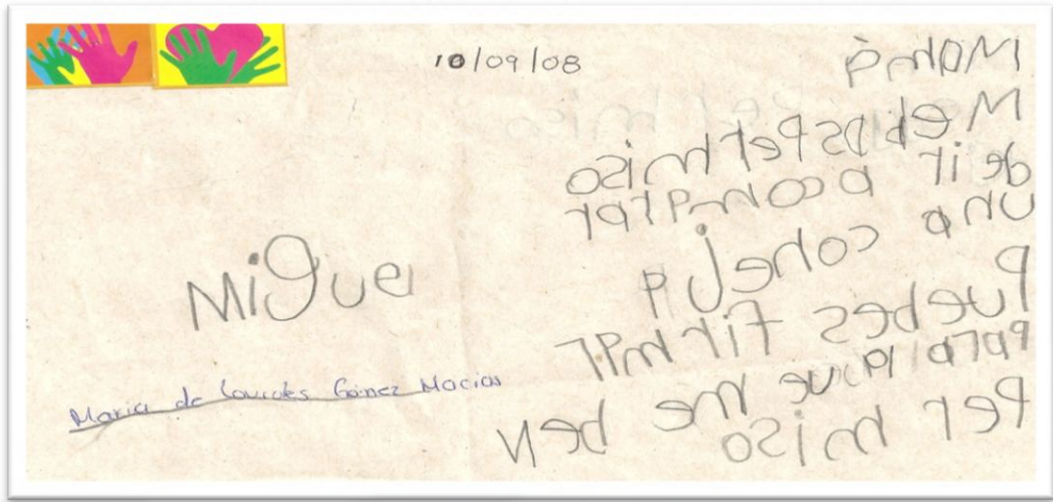 10/09/08
Mamá
Me bas Permiso
de ir a comprar
una coneja
Puebes Firmar
para que me beN
Permiso
Miguel
Maria de Lourdes Gómez Macias